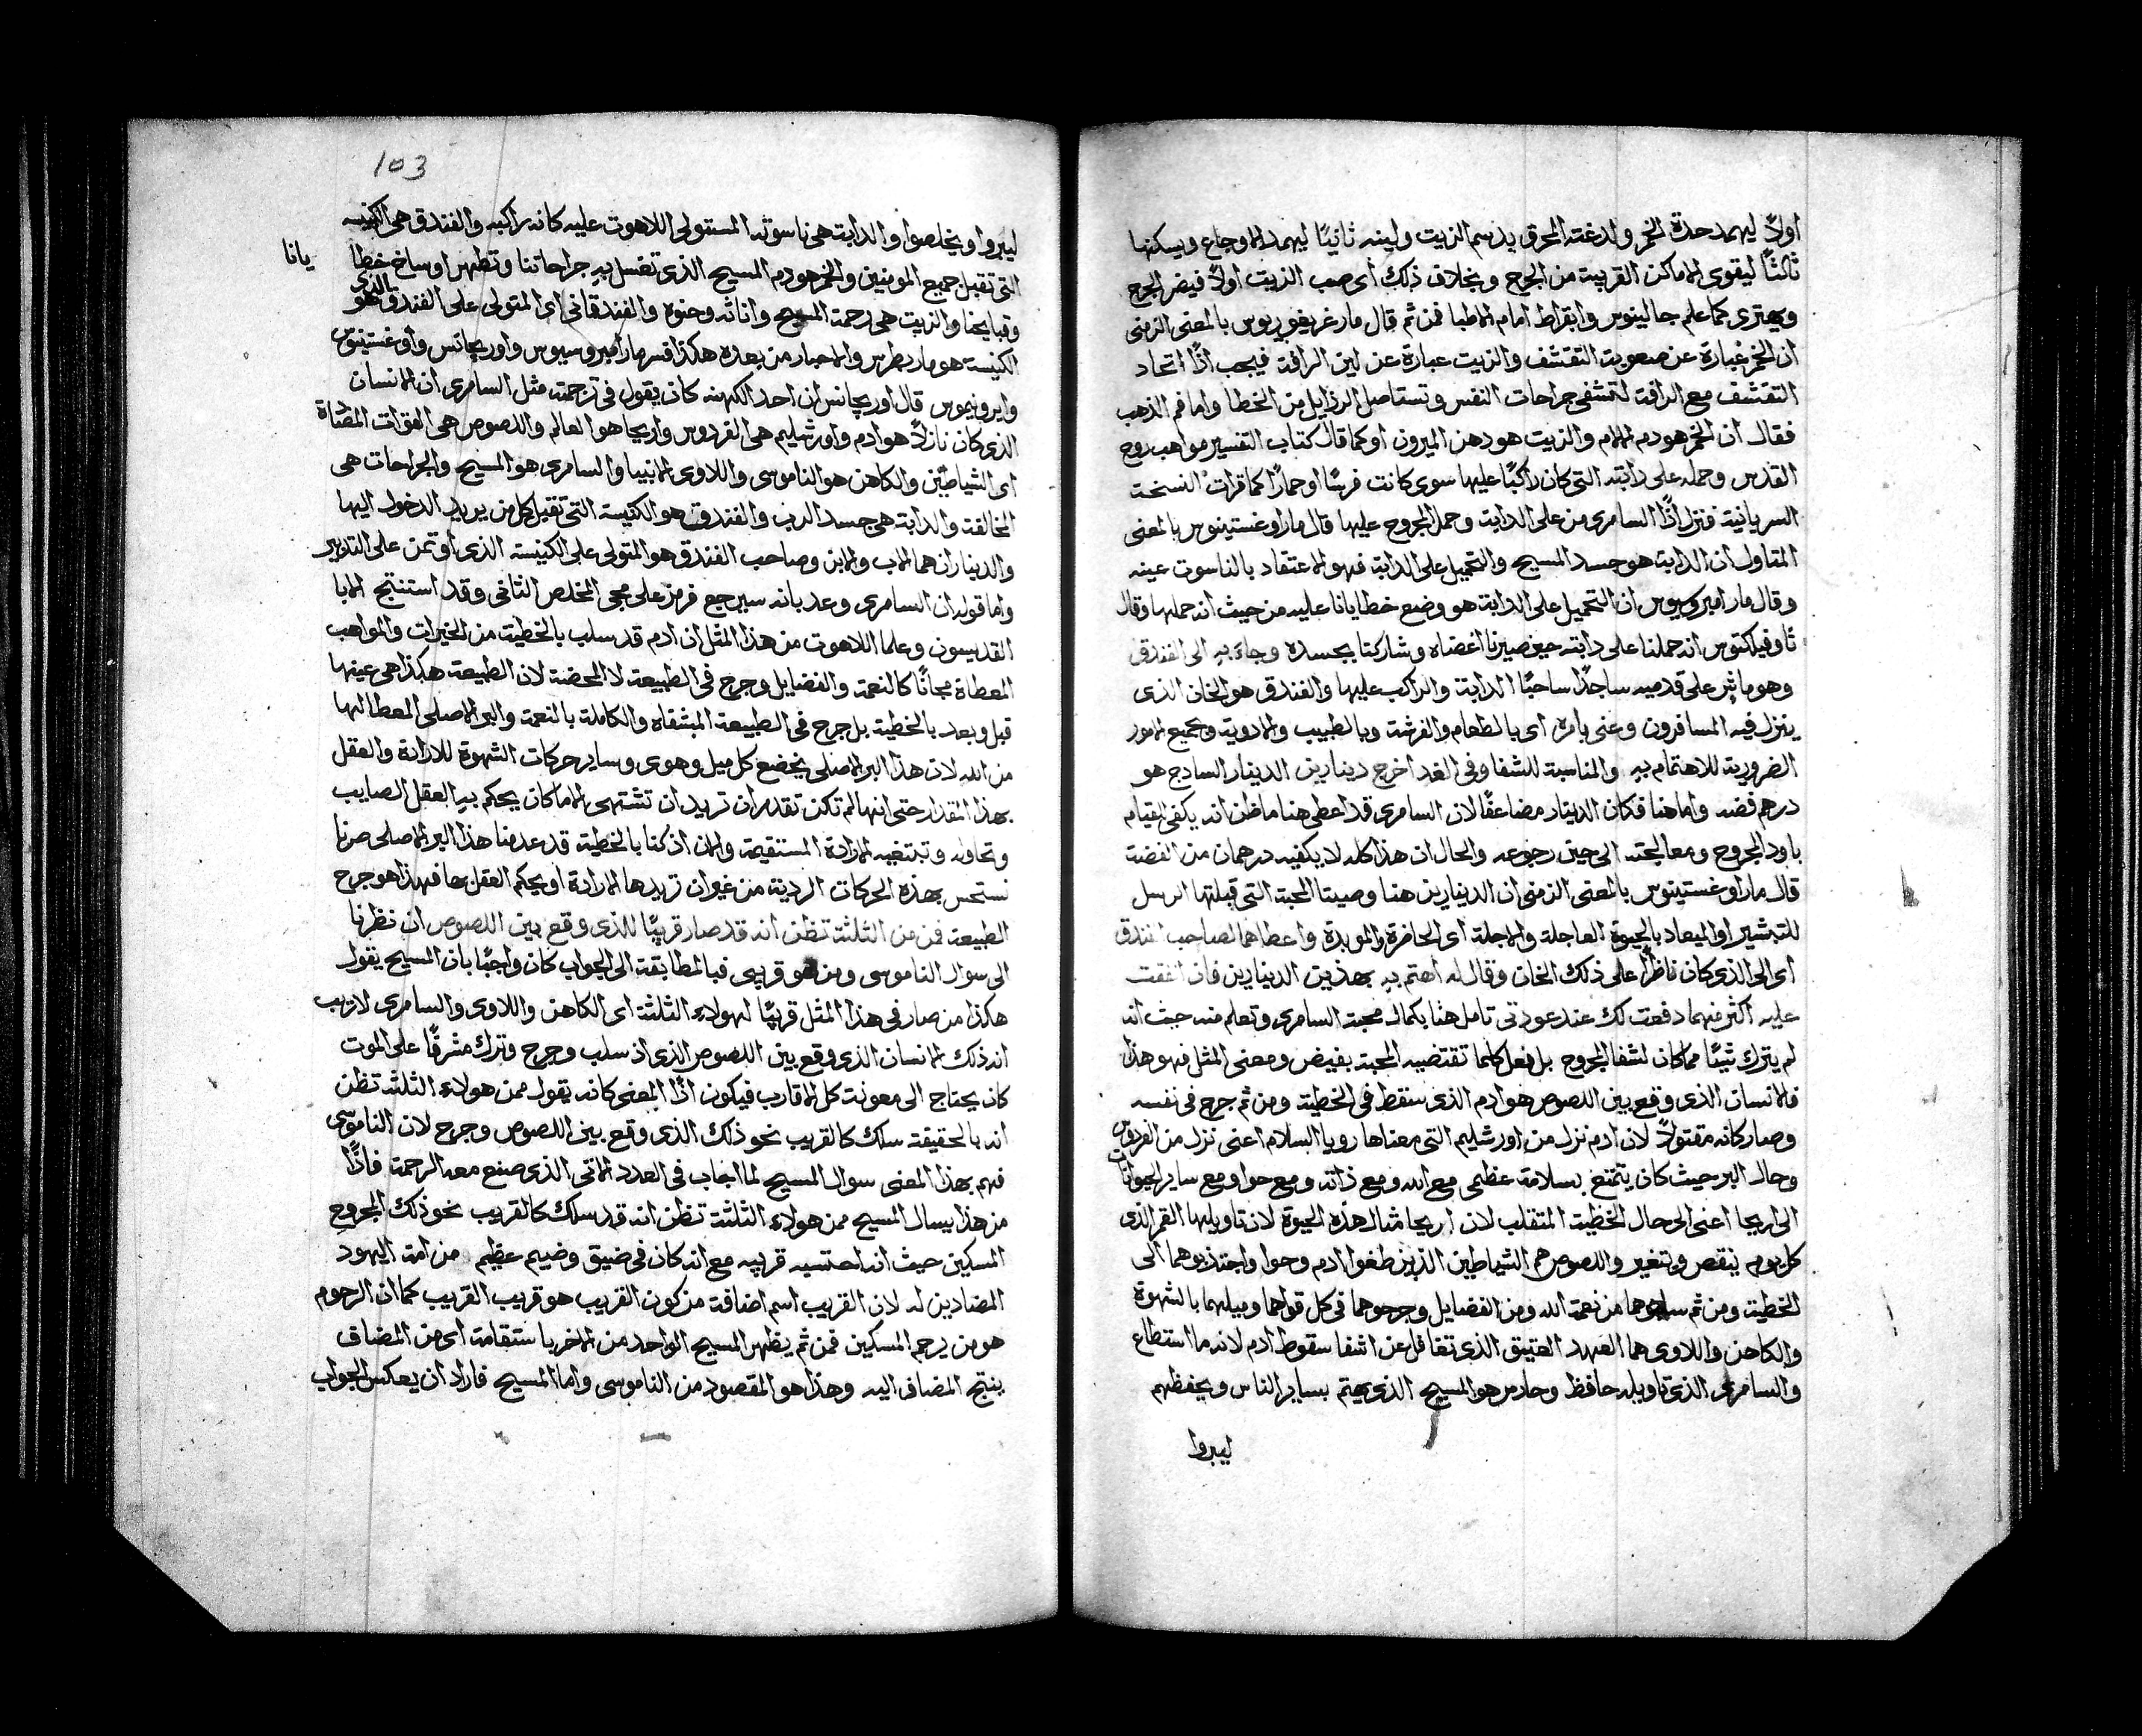 اولاً ليهمد حدة الخمر ولدغته المحرق بدسم الزيت ولينه ثانيًا ليهمد الاوجاع ويسكنها
ثالثًا ليقوى الاماكن القريبة من الجرح وبخلاف ذلك اى صب الزيت اولاً فيضر الجرح
ويهترى كما علم جالينوس وابقراط امام الاطبا فمن ثم قال مار غريغوريوس بالمعنى الرمزى
ان الخمر عبارة عن صعوبة التقشف والزيت عبارة عن لين الرافة فيجب اذًا اتحاد
التقشف مع الرافة لتشفى جراحات النفس وتستاصل الرذايل من الخطا واما فم الذهب
فقال ان الخمر هو دم الالام والزيت هو دهن الميرون او كما قال كتاب التفسير مواهب روح
القدس وحمله على دابته التى كان راكبًا عليها سوى كانت فرسًا او حمارًا كما قرات النسخة
السريانية فنزل اذًا السامرى من على الدابة وحمل المجروح عليها قال مار اوغستينوس بالمعنى
المتاول ان الدابة هو جسد المسيح والتحميل على الدابة فهو الاعتقاد بالناسوت عينه
وقال مار امبروسيوس ان التحميل على الدابة هو وضع خطايانا عليه من حيث انه حملها وقال
ثاوفيلكتوس انه حملنا على دابته حين صيرنا اعضاه وشاركنا بجسده وجاء به الى الفندق
وهو ماشٍ على قدميه ساجدًا ساحبًا الدابة والراكب عليها والفندق هو الخان الذى
يتنزل فيه المسافرون وعنى بامره اى بالطعام والفرشة وبالطبيب والادوية وبجميع الامور
الضرورية للاهتمام به والمناسبة للشفا وفى الغد اخرج دينارين الدينار السادج هو
درهم فضه واما هنا فكان الدينار مضاعفًا لان السامرى قد اعطى هنا ما ظن انه يكفى لقيام
باود المجروح ومعالجته الى حين رجوعه والحال ان هذا كله لا يكفيه درهمان من الفضة
قال مار اوغستينوس بالمعنى الرمزى ان الدينارين هنا وصيتا المحبة التى قبلتها الرسل
للتبشير او الميعاد بالحيوة العاجلة والاجلة اى الحاضرة والموبدة واعطاهما لصاحب الفندق
اى الى الذى كان ناظرًا على ذلك الخان وقال له اهتم به بهذين الدينارين فان انفقت
عليه اكثر منهما دفعت لك عند عودتى تامل هنا بكمال محبة السامرى وتعلم منه حيث انه
لم يترك شيئًا مما كان لشفا المجروح بل فعل كلما تقتضيه المحبة بفيض ومعنى المثل فهو هذا
فالانسان الذى وقع بين اللصوص هو ادم الذى سقط فى الخطية ومن ثم جرح فى نفسه
وصار كانه مقتولاً لان ادم نزل من اورشليم التى معناها رويا السلام اعنى نزل من الفردوس
وحال البر حيث كان يتمتع بسلامة عظمى مع الله ومع ذاته ومع حوا ومع ساير الحيوانات
الى اريحا اعنى الى حال الخطية المتقلب لان اريحا مثال هذه الحيوة لان تاويلها القمر الذى
كل يوم ينقص ويتغير واللصوص هم الشياطين الذين طغوا ادم وحوا واجتذبوهما الى
الخطية ومن ثم سلبوهما من نعمة الله ومن الفضايل وجرحوهما فى كل قواهما وميلهما بالشهوة
والكاهن واللاوى هما العهد العتيق الذى تغافل عن اشفا سقوط ادم لانه ما استطاع
والسامرى الذى تاويله حافظ وحارس هو المسيح الذى يهتم بساير الناس ويحفظهم
ليبروا
103
ليبروا ويخلصوا والدابة هى ناسوته المستولى اللاهوت عليه كانه راكبه والفندق هى الكنيسه
التى تقبل جميع المومنين والخمر هو دم المسيح الذى تغسل به جراحاتنا وتطهر اوساخ خطا
يانا
وقبايحنا والزيت هى رحمة المسيح واناته وحنوه والفندقانى اى المتولى على الفندق هو
بالذى
الكنيسة هو مار بطرس والاحبار من بعده هكذا فسر مار امبروسيوس واوريجانس واوغستينوس
وايرونيموس قال اوريجانس ان احد الكهنه كان يقول فى ترجمته مثل السامرى ان الانسان
الذى كان نازلاً هو ادم واورشليم هى الفردوس واريحا هو العالم واللصوص هى القوات المضادة
اى الشياطين والكاهن هو الناموس واللاوى الانبيا والسامرى هو المسيح والجراحات هى
المخالفة والدابة هى جسد الرب والفندق هو الكنيسة التى تقبل كل من يريد الدخول اليها
والديناران هما الاب والابن وصاحب الفندق هو المتولى على الكنيسه الذى اوتمن على التدبير
واما قوله ان السامرى وعد بانه سيرجع فرمز على مجى المخلص الثانى وقد استنتج الابا
القديسون وعلما اللاهوت من هذا المثل ان ادم قد سلب بالخطية من الخيرات والمواهب
المعطاة مجانًا كالنعمة والفضايل وجرح فى الطبيعة لا المحضة لان الطبيعة هكذا هى عينها
قبل وبعد بالخطية بل جرح فى الطبيعة المشفاه والكاملة بالنعمة والبر الاصلى المعطا لها
من الله لان هذا البر الاصلى يخضع كل ميل وهوى وساير حركات الشهوة للارادة والعقل
بهذا المقدار حتى انها لم تكن تقدر ان تريد ان تشتهى الا ما كان يحكم به العقل الصايب
وتحاوله وتبتغيه الارادة المستقيمة والان اذ كنا بالخطية قد عدمنا هذا البر الاصلى صرنا
نستحس بهذه الحركات الردية من غير ان تريدها الارادة او يحكم العقل بها فهذا هو جرح
الطبيعة فمن من الثلثة تظن انه قد صار قريبًا للذى وقع بين اللصوص ان نظرنا
الى سوال الناموسى ومن هو قريبى فبالمطابقة الى الجواب كان واجبًا بان المسيح يقول
هكذا من صار فى هذا المثل قريبًا لهولاء الثلثة اى الكاهن واللاوى والسامرى لا ريب
انه ذلك الانسان الذى وقع بين اللصوص الذى اذ سلب وجرح وترك مشرفًا على الموت
كان يحتاج الى معونة كل الاقارب فيكون اذًا المعنى كانه يقول ممن هولاء الثلثه تظن
انه بالحقيقة سلك كالقريب نحو ذلك الذى وقع بين اللصوص وجرح لان الناموسى
فهم بهذا المعنى سوال المسيح لما اجاب فى العدد الاتى الذى صنع معه الرحمة فاذًا
من هذا يسال المسيح ممن هولاء الثلثة تظن انه قد سلك كالقريب نحو ذلك المجروح
المسكين حيث انه احتسبه قريبه مع انه كان فى ضيق وضيم عظيم من امة اليهود
المضادين له لان القريب اسم اضافة من كون القريب هو قريب القريب كما ان الرحوم
هو من يرحم المسكين فمن ثم يظهر المسيح الواحد من الاخر باستقامة اى من المضاف
ينتج المضاف اليه وهذا هو المقصود من الناموسى واما المسيح فاراد ان يعكس الجواب